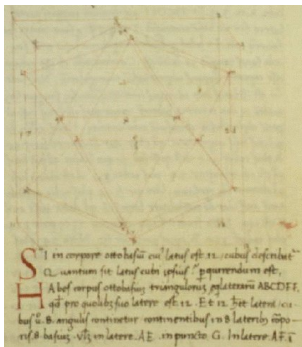 SI in corpore ottobasiũ cuiꝰ latus est .12. cubus describatur
Quantum sit latus cubi ipsius perquirendum est.
HAbes corpus ottobasium triangulorum equilaterũ ABCDEF,
qđ pro quolibet suo latere est .12. Et .12. habet latera; cu
bus ũ. 8. angulis continetur contingentibus in 8 lateribus corpo-
ris .8. basium. Vʒ in latere A E. in puncto G. In latere A F. i